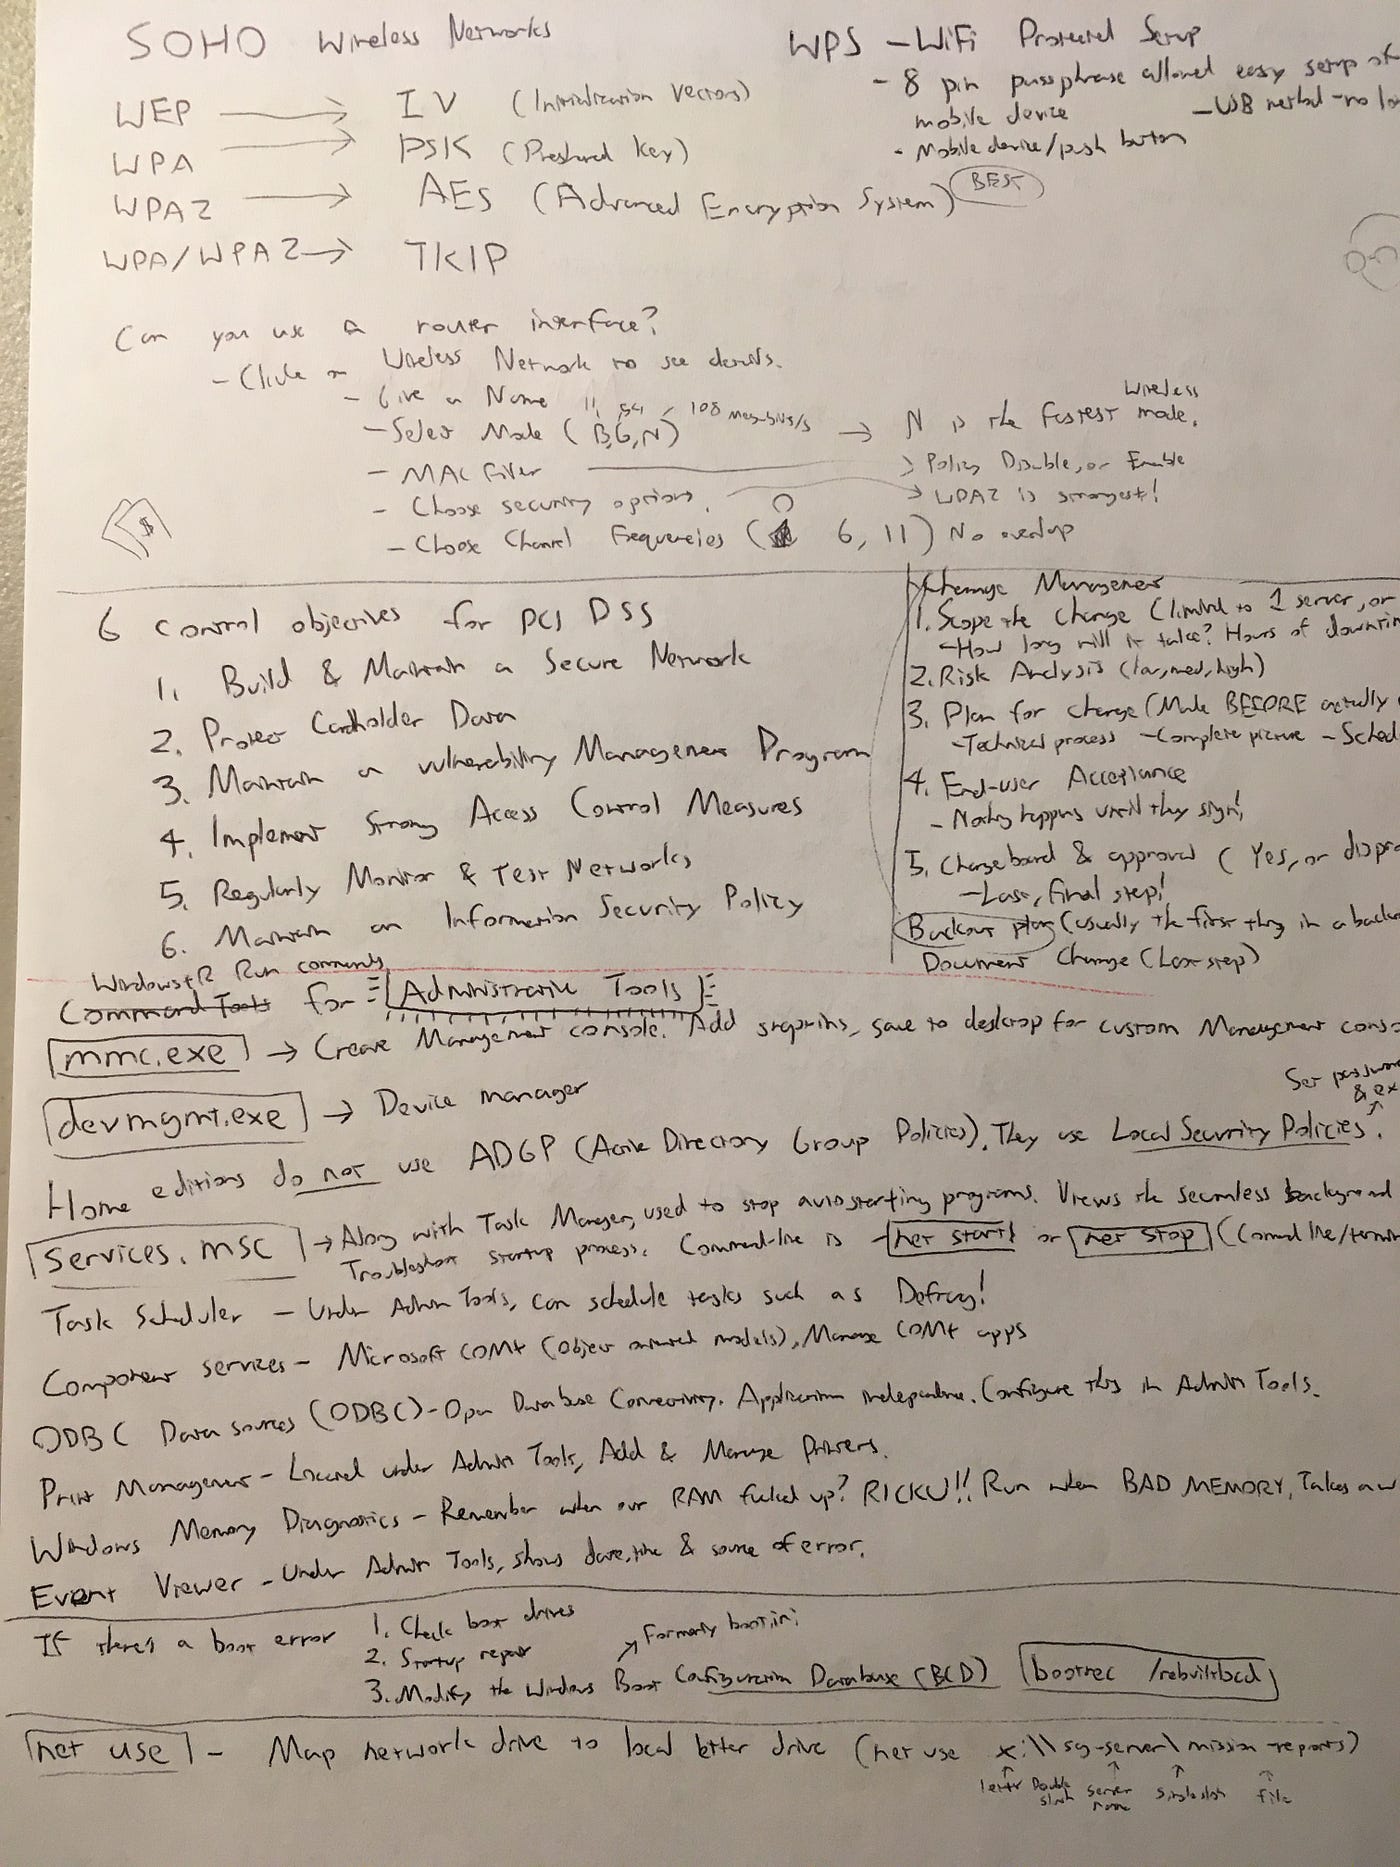 SOHO Wireless Networks
WEP → IV (Initialization Vectors)
WPA → PSK (Preshared Key)
WPA2 → AES (Advanced Encryption System) BEST
WPA/WPA2 → TKIP
WPS - WiFi Protected Setup
- 8 pin passphrase allowed easy setup of
mobile device
- USB method - no
- Mobile device/push button
Can you use a router interface?
- Click on Wireless Network to see details.
- Give a Name
11, 54, 108 megabits/s
- Select Mode (B,G,N) → N is the fastest wireless mode.
- MAC Filter → Policy Disable, or Enable
- Choose security options. → WPA2 is strongest!
- Choose Channel Frequencies (1 6, 11) No overlap
$
6 control objectives for PCI DSS
1. Build & Maintain a Secure Network
2. Protect Cardholder Data
3. Maintain a vulnerability Management Program
4. Implement Strong Access Control Measures
5. Regularly Monitor & Test Networks
6. Maintain an Information Security Policy
Change Management
1. Scope the Change (limited to 1 server, or
- How long will it take? Hours of
2. Risk Analysis (low, med, high)
3. Plan for change (Made BEFORE actually
- Technical process - Complete picture -
4. End-user Acceptance
- Nothing happens until they sign!
5. Change board & approval (Yes, or
- Last, final step!
Backout plan (usually the first thing in a
Document Change (Last step)
Windows+R Run commands
Command Tools for Administrative Tools
mmc.exe → Create Management console. Add snapins, save to desktop for custom Management
devmgmt.exe → Device manager
Set
&
Home editions do not use ADGP (Active Directory Group Policies). They use Local Security Policies.
services.msc → Along with Task Manager, used to stop autostarting programs. Views the seamless background
Troubleshoot startup process. Command-line is - net start or net stop
Task Scheduler - Under Admin Tools, can schedule tasks such as Defrag!
Component services - Microsoft COM+ (object oriented models), Manage COM+ apps
ODBC Data sources (ODBC) - Open Database Connectivity. Application independent. Configure this in Admin Tools.
Print Management - Located under Admin Tools, Add & Manage Printers.
Windows Memory Diagnostics - Remember when our RAM fucked up? RICKU!! Run when BAD MEMORY, Takes a
Event Viewer - Under Admin Tools, shows date, time & source of error.
If there's a boot error 1. Check boot drives
2. Startup repair
Formerly boot.ini
3. Modify the Windows Boot Configuration Database (BCD) bootrec /rebuildbcd
net use - Map network drive to local letter drive (net use x:\\sg-server\mission-reports)
letter Double slash server name single slash file